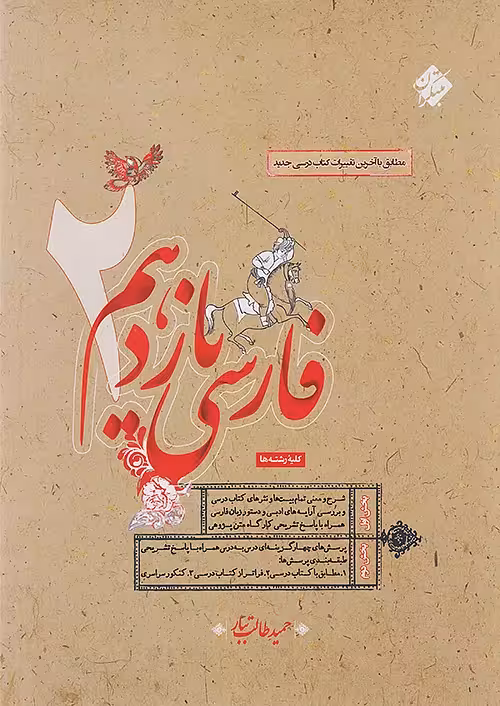 مبتکران
مطابق با آخرین تغییرات کتاب درسی جدید
فارسی یازدهم ۲
کلیهٔ رشته‌ها
بخش اول
شرح و معنی تمام بیت‌ها و نثرهای کتاب درسی
و بررسی آرایه‌های ادبی و دستور زبان فارسی
همراه با پاسخ تشریحی کارگاه متن پژوهی
بخش دوم
پرسش‌های چهارگزینه‌ای درس به درس همراه با پاسخ تشریحی
طبقه‌بندی پرسش‌ها:
۱. مطابق با کتاب درسی ۲. فراتر از کتاب درسی ۳. کنکور سراسری
حمید طالب تبار